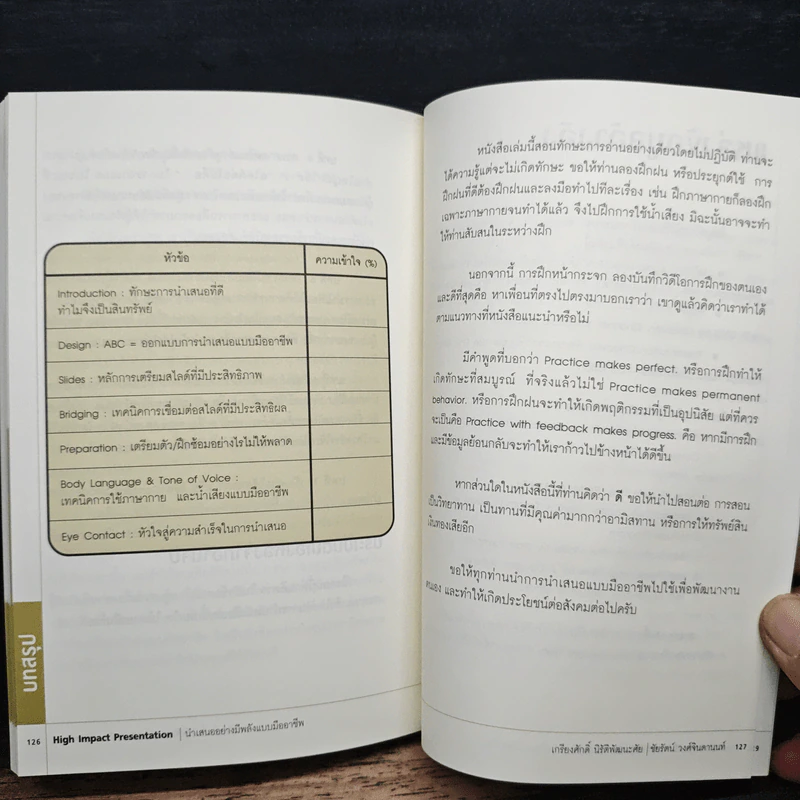 หัวข้อ ความเข้าใจ (%)
Introduction : ทักษะการนำเสนอที่ดี
ทำไมจึงเป็นสินทรัพย์
Design : ABC = ออกแบบการนำเสนอแบบมืออาชีพ
Slides : หลักการเตรียมสไลด์ที่มีประสิทธิภาพ
Bridging : เทคนิคการเชื่อมต่อสไลด์ที่มีประสิทธิผล
Preparation : เตรียมตัว/ฝึกซ้อมอย่างไรไม่ให้พลาด
Body Language & Tone of Voice :
เทคนิคการใช้ภาษากาย และน้ำเสียงแบบมืออาชีพ
Eye Contact : หัวใจสู่ความสำเร็จในการนำเสนอ
บทสรุป
126 High Impact Presentation | นำเสนออย่างมีพลังแบบมืออาชีพ
หนังสือเล่มนี้สอนทักษะการอ่านอย่างเดียวโดยไม่ปฏิบัติ ท่านจะ
ได้ความรู้แต่จะไม่เกิดทักษะ ขอให้ท่านลองฝึกฝน หรือประยุกต์ใช้ การ
ฝึกฝนที่ดีต้องฝึกฝนและลงมือทำไปทีละเรื่อง เช่น ฝึกภาษากายก็ลองฝึก
เฉพาะภาษากายจนทำได้แล้ว จึงไปฝึกการใช้น้ำเสียง มิฉะนั้นอาจจะทำ
ให้ท่านสับสนในระหว่างฝึก
นอกจากนี้ การฝึกหน้ากระจก ลองบันทึกวิดีโอการฝึกของตนเอง
และดีที่สุดคือ หาเพื่อนที่ตรงไปตรงมาบอกเราว่า เขาดูแล้วคิดว่าเราทำได้
ตามแนวทางที่หนังสือแนะนำหรือไม่
มีคำพูดที่บอกว่า Practice makes perfect. หรือการฝึกทำให้
เกิดทักษะที่สมบูรณ์ ที่จริงแล้วไม่ใช่ Practice makes permanent
behavior. หรือการฝึกฝนจะทำให้เกิดพฤติกรรมที่เป็นอุปนิสัย แต่ที่ควร
จะเป็นคือ Practice with feedback makes progress. คือ หากมีการฝึก
และมีข้อมูลย้อนกลับจะทำให้เราก้าวไปข้างหน้าได้ดีขึ้น
หากส่วนใดในหนังสือนี้ที่ท่านคิดว่า ดี ขอให้นำไปสอนต่อ การสอน
เป็นวิทยาทาน เป็นทานที่มีคุณค่ามากกว่าอามิสทาน หรือการให้ทรัพย์สิน
เงินทองเสียอีก
ขอให้ทุกท่านนำการนำเสนอแบบมืออาชีพไปใช้เพื่อพัฒนางาน
ตนเอง และทำให้เกิดประโยชน์ต่อสังคมต่อไปครับ
เกรียงศักดิ์ นิรัติพัฒนะศัย | ชัยรัตน์ วงศ์จินดานนท์ 127 9